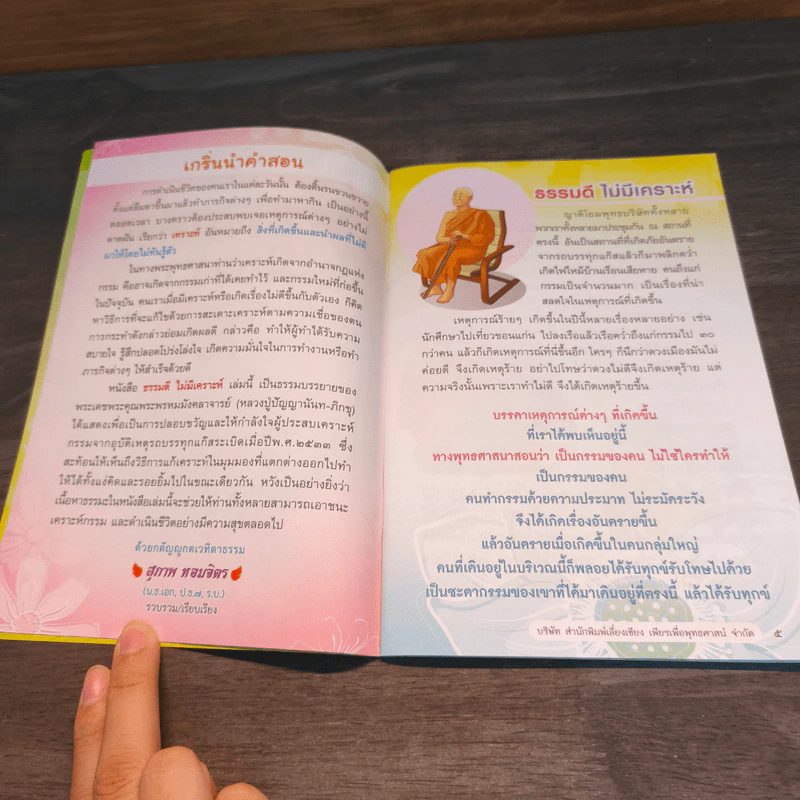 เกริ่นนำคำสอน
การดำเนินชีวิตของคนเราในแต่ละวันนั้น ต้องดิ้นรนขวนขวาย
ตั้งแต่ลืมตาขึ้นมาแล้วทำภารกิจต่างๆ เพื่อทำมาหากิน เป็นอย่างนี้
ตลอดเวลา บางคราวต้องประสบพบเจอเหตุการณ์ต่างๆ อย่างไม่
คาดฝัน เรียกว่า เคราะห์ อันหมายถึง สิ่งที่เกิดขึ้นและนำผลที่ไม่ดี
มาให้โดยไม่ทันรู้ตัว
ในทางพระพุทธศาสนาท่านว่าเคราะห์เกิดจากอำนาจกฎแห่ง
กรรม คืออาจเกิดจากกรรมเก่าที่ได้เคยทำไว้ และกรรมใหม่ที่ก่อขึ้น
ในปัจจุบัน คนเราเมื่อมีเคราะห์หรือเกิดเรื่องไม่ดีขึ้นกับตัวเอง ก็คิด
หาวิธีการที่จะแก้ไขด้วยการสะเดาะเคราะห์ตามความเชื่อของตน
การกระทำดังกล่าวย่อมเกิดผลดี กล่าวคือ ทำให้ผู้ทำได้รับความ
สบายใจ รู้สึกปลอดโปร่งโล่งใจ เกิดความมั่นใจในการทำงานหรือทำ
ภารกิจต่างๆ ให้สำเร็จด้วยดี
หนังสือ ธรรมดี ไม่มีเคราะห์ เล่มนี้ เป็นธรรมบรรยายของ
พระเดชพระคุณพระพรหมมังคลาจารย์ (หลวงปู่ปัญญานันท-ภิกขุ)
ได้แสดงเพื่อเป็นการปลอบขวัญและให้กำลังใจผู้ประสบเคราะห์
กรรมจากอุบัติเหตุรถบรรทุกแก๊สระเบิดเมื่อปีพ.ศ.๒๕๓๓ ซึ่ง
สะท้อนให้เห็นถึงวิธีการแก้เคราะห์ในมุมมองที่แตกต่างออกไปทำ
ให้ได้ทั้งแง่คิดและรอยยิ้มไปในขณะเดียวกัน หวังเป็นอย่างยิ่งว่า
เนื้อหาธรรมะในหนังสือเล่มนี้จะช่วยให้ท่านทั้งหลายสามารถเอาชนะ
เคราะห์กรรม และดำเนินชีวิตอย่างมีความสุขตลอดไป
ด้วยกตัญญูกตเวทิตาธรรม
สุภาพ หอมจิตร
(น.ธ.เอก, ป.ธ.๗, ร.บ.)
รวบรวม/เรียบเรียง
ธรรมดี ไม่มีเคราะห์
ญาติโยมพุทธบริษัททั้งหลาย
พวกเราทั้งหลายมาประชุมกัน ณ สถานที่
ตรงนี้ อันเป็นสถานที่ที่เกิดภัยอันตราย
จากรถบรรทุกแก๊สแล้วก็มาพลิกคว่ำ
เกิดไฟไหม้บ้านเรือนเสียหาย คนถึงแก่
กรรมเป็นจำนวนมาก เป็นเรื่องที่น่า
สลดใจในเหตุการณ์ที่เกิดขึ้น
เหตุการณ์ร้ายๆ เกิดขึ้นในปีนี้หลายเรื่องหลายอย่าง เช่น
นักศึกษาไปเที่ยวขอนแก่น ไปลงเรือแล้วเรือคว่ำถึงแก่กรรมไป ๓๐
กว่าคน แล้วก็เกิดเหตุการณ์ที่นี่ขึ้นอีก ใครๆ ก็นึกว่าดวงเมืองมันไม่
ค่อยดี จึงเกิดเหตุร้าย อย่าไปโทษว่าดวงไม่ดีจึงเกิดเหตุร้าย แต่
ความจริงนั้นเพราะเราทำไม่ดี จึงได้เกิดเหตุร้ายขึ้น
บรรดาเหตุการณ์ต่างๆ ที่เกิดขึ้น
ที่เราได้พบเห็นอยู่นี้
ทางพุทธศาสนาสอนว่า เป็นกรรมของคน ไม่ใช่ใครทำให้
เป็นกรรมของคน
คนทำกรรมด้วยความประมาท ไม่ระมัดระวัง
จึงได้เกิดเรื่องอันตรายขึ้น
แล้วอันตรายเมื่อเกิดขึ้นในคนกลุ่มใหญ่
คนที่เดินอยู่ในบริเวณนี้ก็พลอยได้รับทุกข์รับโทษไปด้วย
เป็นชะตากรรมของเขาที่ได้มาเดินอยู่ที่ตรงนี้ แล้วได้รับทุกข์
บริษัท สำนักพิมพ์เลี่ยงเชียง เพียรเพื่อพุทธศาสน์ จำกัด ๕